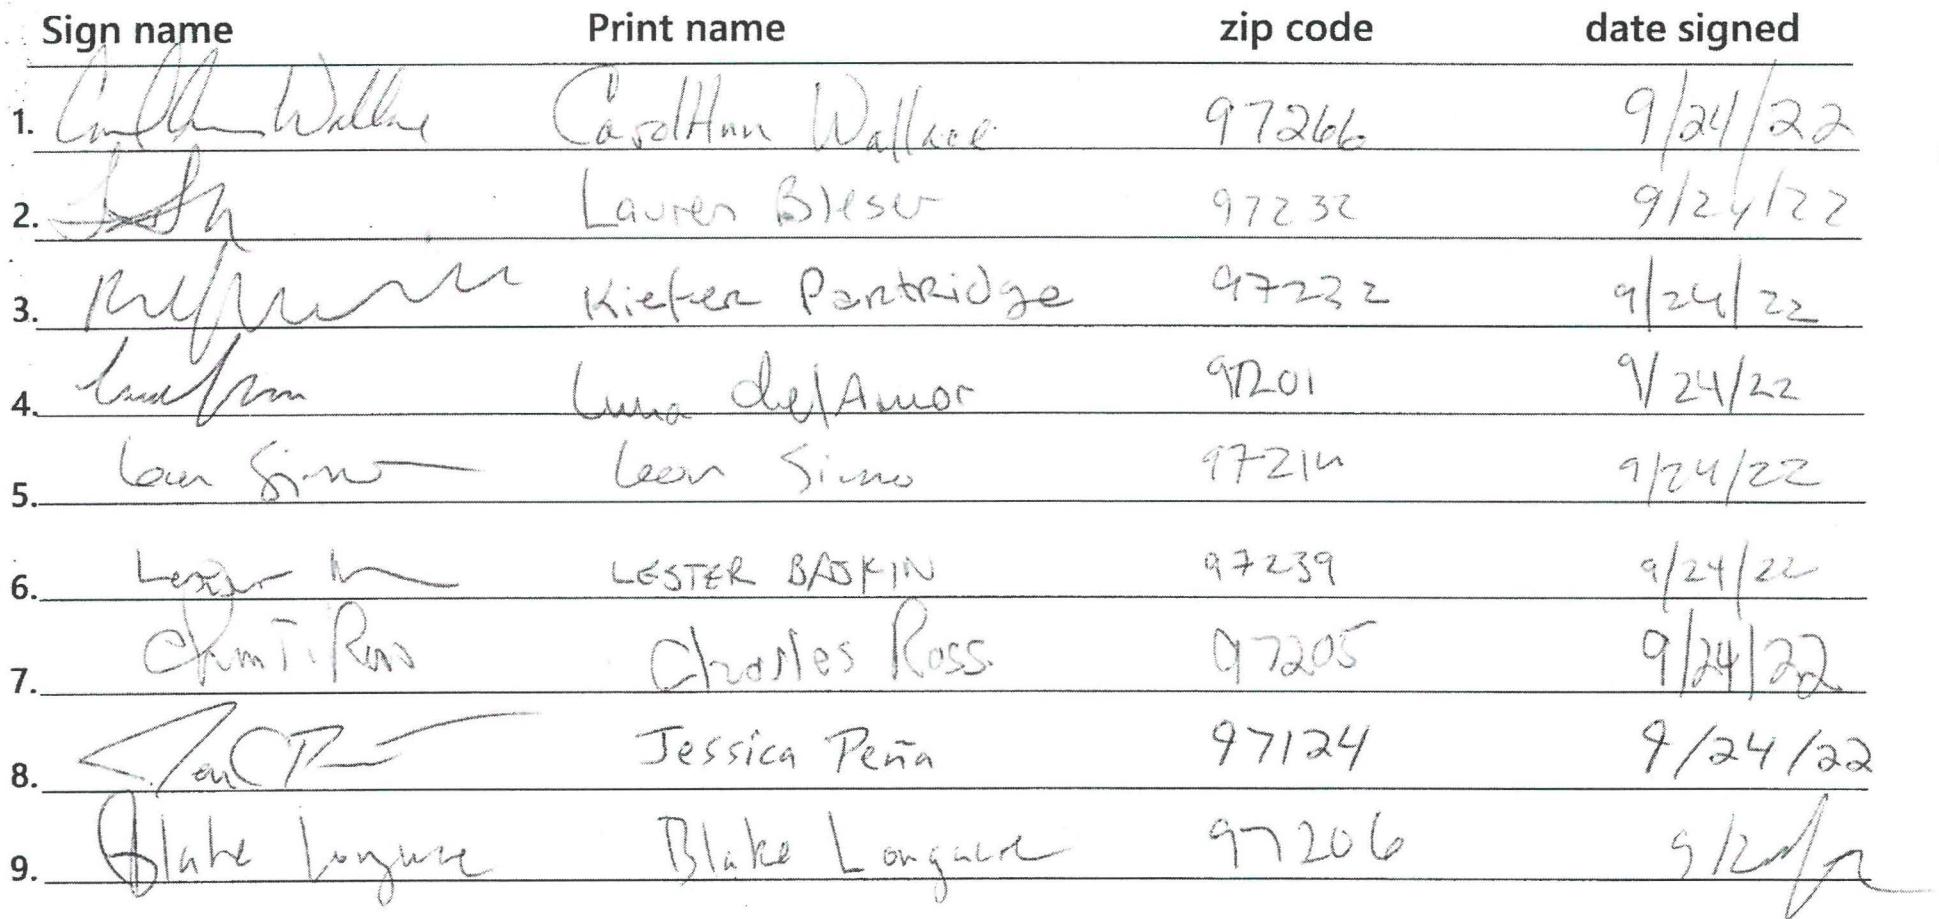 Sign name Print name zip code date signed
1. CarolAnn Wallace CarolAnn Wallace 97266 9/24/22
2. Lauren Bleser 97232 9/24/22
3. Kiefer Partridge 97232 9/24/22
4. Luna del Amor 97201 9/24/22
5. Leon Simo Leon Simo 97214 9/24/22
6. Lester LESTER BASKIN 97239 9/24/22
7. Charles Ross 97205 9/24/22
8. Jessica Peña 97124 9/24/22
9. Blake Blake 97206